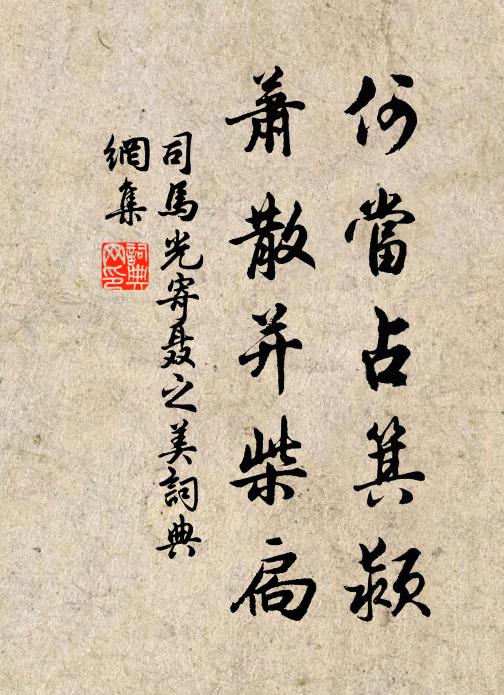 何當占箕潁
蕭散并柴扃
司馬光寄聶之美詞典
網集
詞典
网印